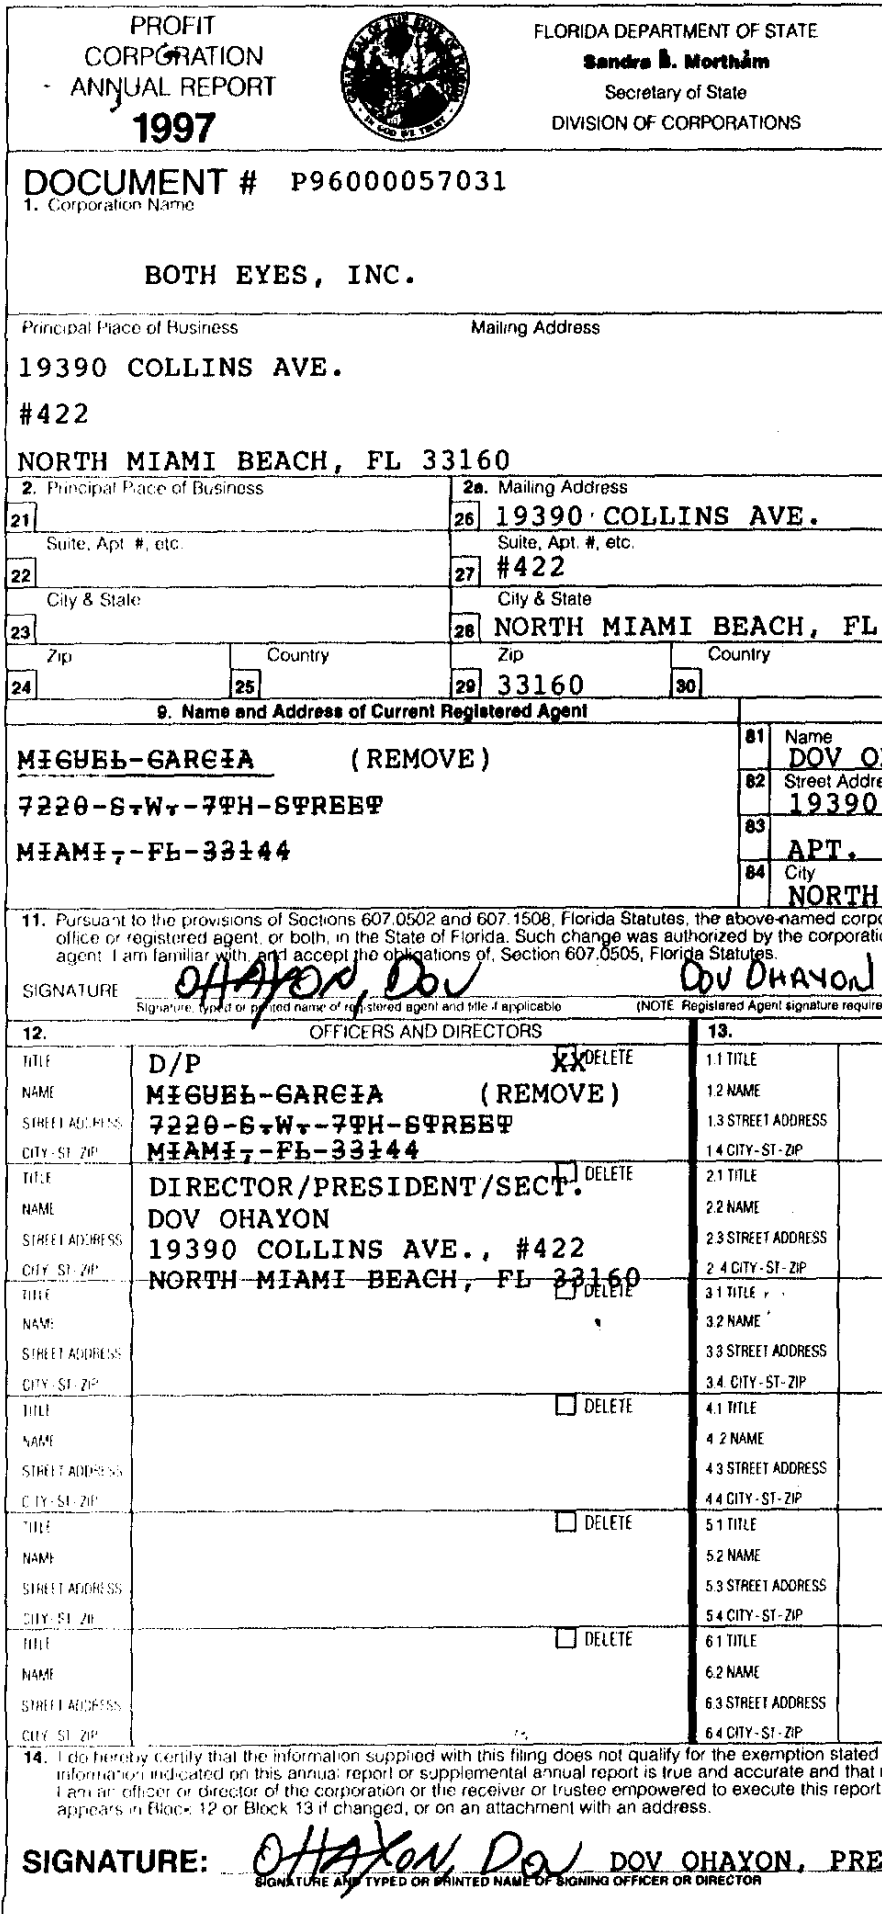 PROFIT
CORPORATION
ANNUAL REPORT
1997
FLORIDA DEPARTMENT OF STATE
Sandra B. Mortham
Secretary of State
DIVISION OF CORPORATIONS
DOCUMENT # P96000057031
1. Corporation Name
BOTH EYES, INC.
Principal Place of Business Mailing Address
19390 COLLINS AVE.
#422
NORTH MIAMI BEACH, FL 33160
2. Principal Place of Business 2a. Mailing Address
21 26 19390 COLLINS AVE.
Suite, Apt. #, etc. Suite, Apt. #, etc.
22 27 #422
City & State City & State
23 28 NORTH MIAMI BEACH, FL
Zip Country Zip Country
24 25 29 33160 30
9. Name and Address of Current Registered Agent
MIGUEL GARCIA (REMOVE)
7220 S.W. 7TH STREET
MIAMI, FL 33144
81 Name
DOV O
82 Street Addre
19390
83
APT.
84 City
NORTH
11. Pursuant to the provisions of Sections 607.0502 and 607.1508, Florida Statutes, the above-named corpo
office or registered agent, or both, in the State of Florida. Such change was authorized by the corporati
agent. I am familiar with, and accept the obligations of, Section 607.0505, Florida Statutes.
SIGNATURE OHAYON, DOV DOV OHAYON
Signature, typed or printed name of registered agent and title if applicable (NOTE Registered Agent signature require
12. OFFICERS AND DIRECTORS 13.
TITLE D/P XX DELETE 1.1 TITLE
NAME MIGUEL GARCIA (REMOVE) 1.2 NAME
STREET ADDRESS 7220 S.W. 7TH STREET 1.3 STREET ADDRESS
CITY-ST-ZIP MIAMI, FL 33144 1.4 CITY-ST-ZIP
TITLE DIRECTOR/PRESIDENT/SECT. DELETE 2.1 TITLE
NAME DOV OHAYON 2.2 NAME
STREET ADDRESS 19390 COLLINS AVE., #422 2.3 STREET ADDRESS
CITY-ST-ZIP NORTH MIAMI BEACH, FL 33160 2.4 CITY-ST-ZIP
TITLE DELETE 3.1 TITLE
NAME 3.2 NAME
STREET ADDRESS 3.3 STREET ADDRESS
CITY-ST-ZIP 3.4. CITY-ST-ZIP
TITLE DELETE 4.1 TITLE
NAME 4.2 NAME
STREET ADDRESS 4.3 STREET ADDRESS
CITY-ST-ZIP 4.4 CITY-ST-ZIP
TITLE DELETE 5.1 TITLE
NAME 5.2 NAME
STREET ADDRESS 5.3 STREET ADDRESS
CITY-ST-ZIP 5.4 CITY-ST-ZIP
TITLE DELETE 6.1 TITLE
NAME 6.2 NAME
STREET ADDRESS 6.3 STREET ADDRESS
CITY-ST-ZIP 6.4 CITY-ST-ZIP
14. I do hereby certify that the information supplied with this filing does not qualify for the exemption stated
information indicated on this annual report or supplemental annual report is true and accurate and that
I am an officer or director of the corporation or the receiver or trustee empowered to execute this report
appears in Block 12 or Block 13 if changed, or on an attachment with an address.
SIGNATURE: OHAYON, DOV DOV OHAYON, PRE
SIGNATURE AND TYPED OR PRINTED NAME OF SIGNING OFFICER OR DIRECTOR